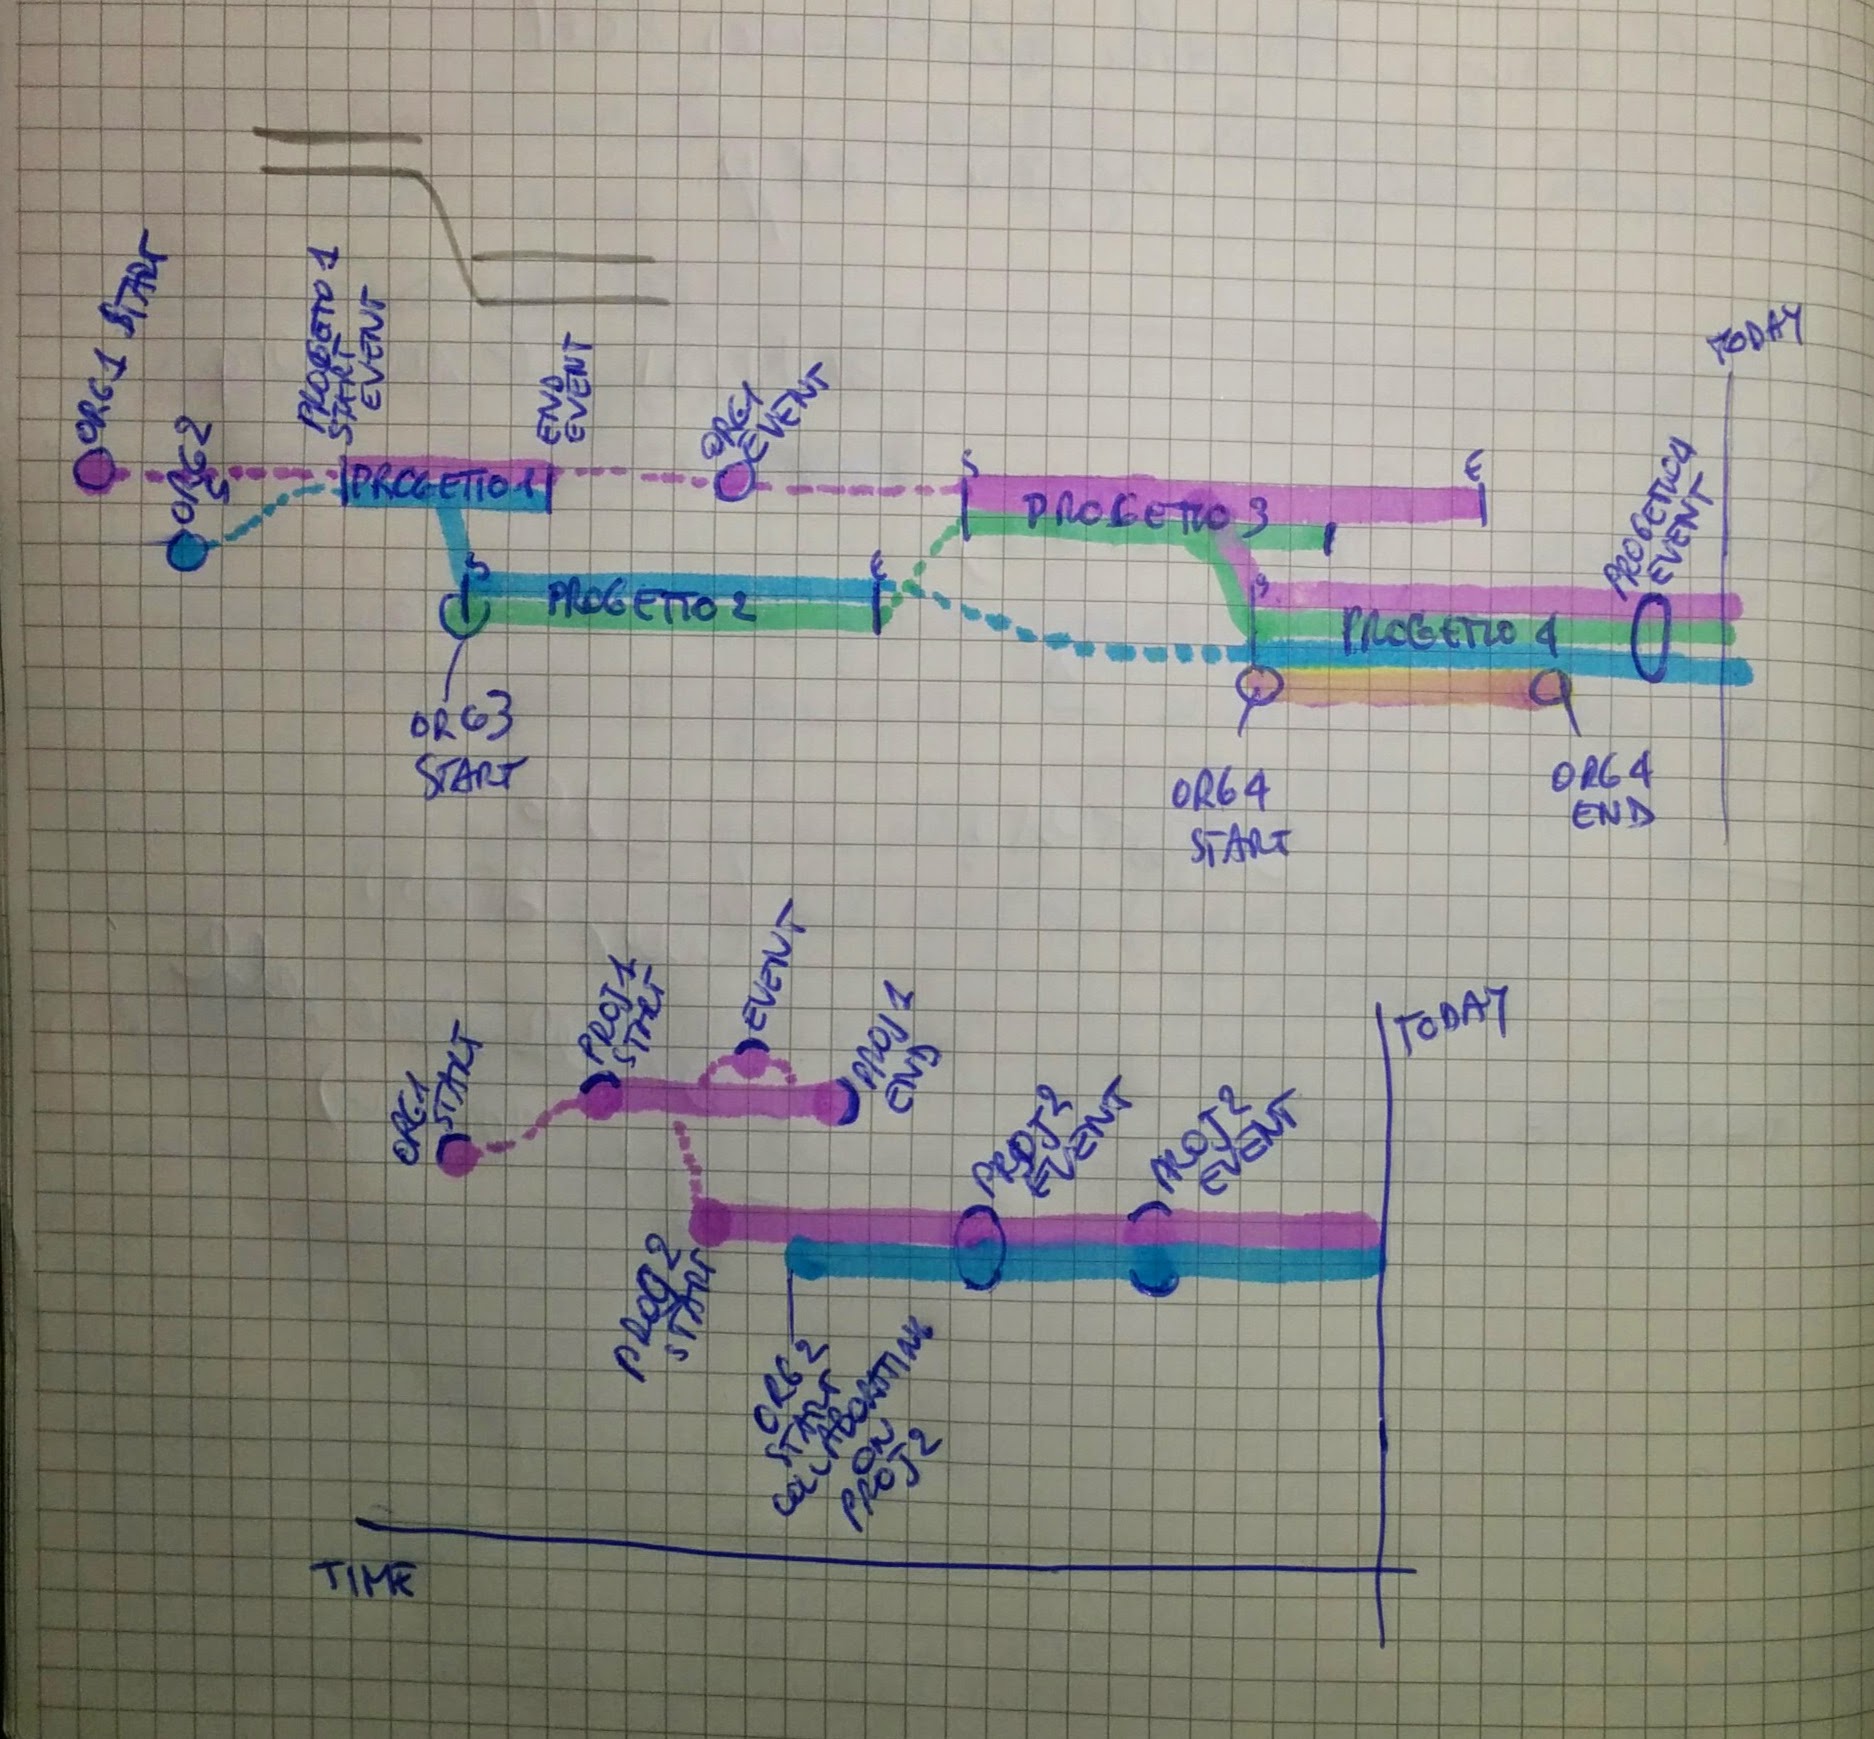 ORG1 START
ORG2
S
PROGETTO 1
START
EVENT
END
EVENT
ORG1
EVENT
TODAY
PROGETTO 1
S
PROGETTO 2
E
S
PROGETTO 3
E
S
PROGETTO 4
PROGETTO 4
EVENT
ORG3
START
ORG4
START
ORG4
END
ORG1
START
PROJ 1
START
EVENT
PROJ 1
END
TODAY
PROJ 2
START
PROJ 2
EVENT
PROJ 2
EVENT
ORG 2
START
COLLABORATING
ON
PROJ 2
TIME